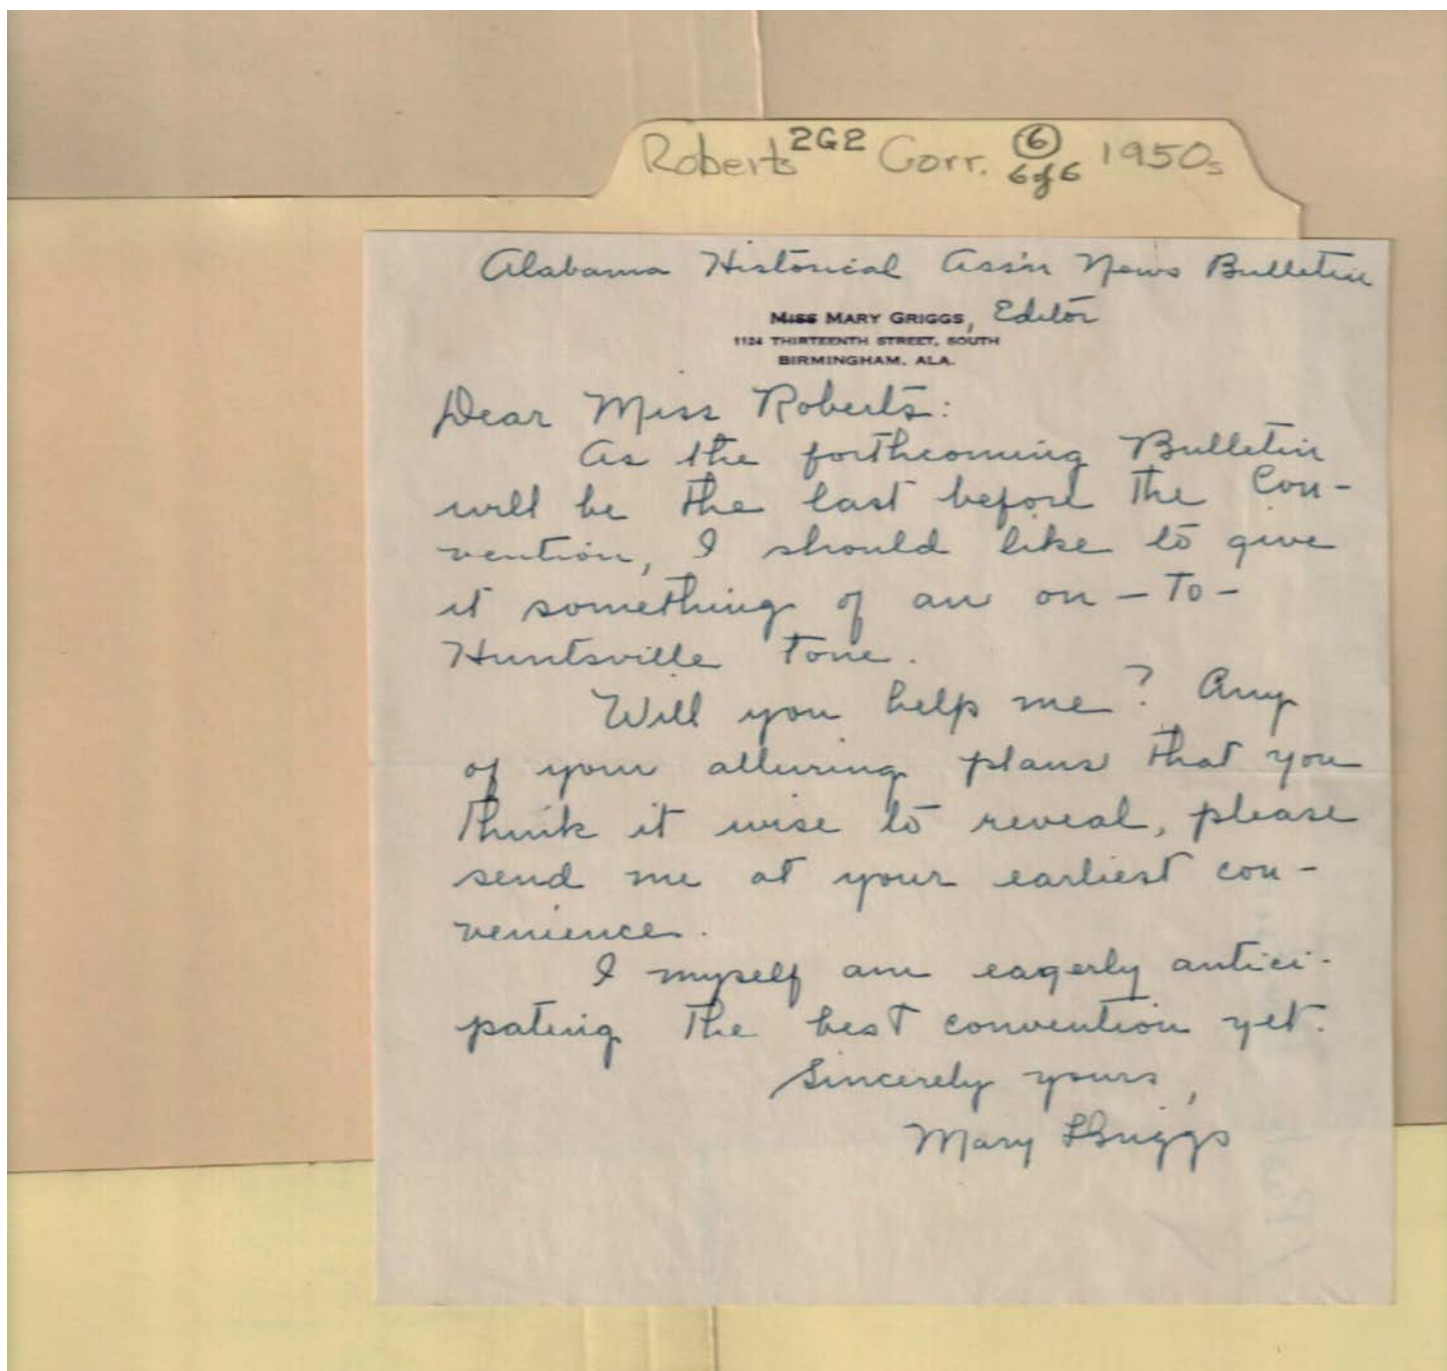 Roberts 2G2 Corr. 6 1950s
6 of 6
Alabama Historical Ass'n News Bulletin
Miss Mary Griggs, Editor
1124 Thirteenth Street, South
Birmingham, Ala.
Dear Miss Roberts:
As the forthcoming Bulletin
will be the last before the Con-
vention, I should like to give
it something of an on-to-
Huntsville tone.
Will you help me? Any
of your alluring plans that you
think it wise to reveal, please
send me at your earliest con-
venience.
I myself am eagerly antici-
pating the best convention yet.
Sincerely yours,
Mary Griggs